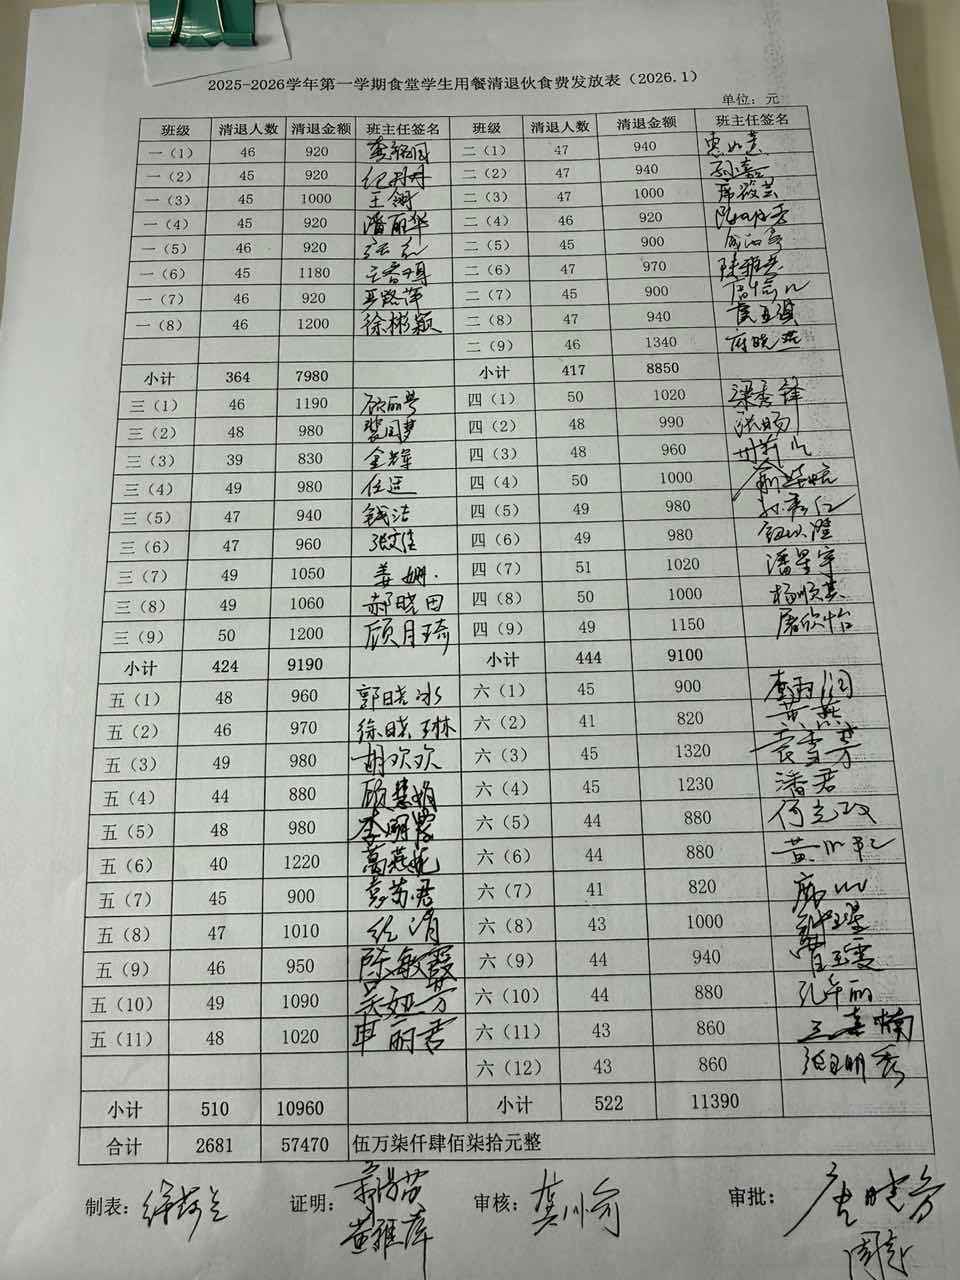 2025-2026学年第一学期食堂学生用餐清退伙食费发放表（2026.1）
单位：元
班级 清退人数 清退金额 班主任签名 班级 清退人数 清退金额 班主任签名
一（1） 46 920 二（1） 47 940
一（2） 45 920 纪丹丹 二（2） 47 940 孙嘉
一（3） 45 1000 二（3） 47 1000
一（4） 45 920 潘丽华 二（4） 46 920
一（5） 46 920 二（5） 45 900
一（6） 45 1180 二（6） 47 970
一（7） 46 920 二（7） 45 900
一（8） 46 1200 徐彬颖 二（8） 47 940
二（9） 46 1340
小计 364 7980 小计 417 8850
三（1） 46 1190 四（1） 50 1020
三（2） 48 980 四（2） 48 990 张旸
三（3） 39 830 金辉 四（3） 48 960
三（4） 49 980 任运 四（4） 50 1000
三（5） 47 940 钱洁 四（5） 49 980
三（6） 47 960 四（6） 49 980
三（7） 49 1050 姜姗 四（7） 51 1020 潘星宇
三（8） 49 1060 郝晓田 四（8） 50 1000
三（9） 50 1200 顾月琦 四（9） 49 1150 屠欣怡
小计 424 9190 小计 444 9100
五（1） 48 960 郭晓冰 六（1） 45 900
五（2） 46 970 徐晓琳 六（2） 41 820 黄燕
五（3） 49 980 胡欢欢 六（3） 45 1320 袁雪芳
五（4） 44 880 顾慧娟 六（4） 45 1230 潘君
五（5） 48 980 六（5） 44 880
五（6） 40 1220 葛燕妮 六（6） 44 880
五（7） 45 900 袁苏君 六（7） 41 820
五（8） 47 1010 六（8） 43 1000
五（9） 46 950 陈敏霞 六（9） 44 940
五（10） 49 1090 吴娅芳 六（10） 44 880
五（11） 48 1020 六（11） 43 860
六（12） 43 860
小计 510 10960 小计 522 11390
合计 2681 57470 伍万柒仟肆佰柒拾元整
制表： 证明： 审核： 审批：
黄雅萍